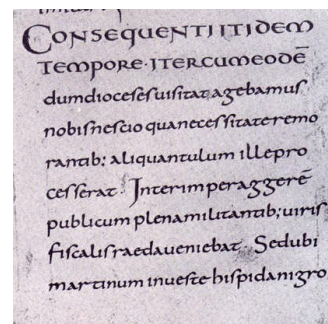 CONSEQUENTI ITIDEM
TEMPORE · ITER CUM EODĒ
dum dioceses uisitat agebamus
nobis nescio qua necessitate remo
rantib; aliquantulum ille pro
cesserat. Interim per aggerē
publicum plena militantib; uiris
fiscalis raeda ueniebat. Sed ubi
martinum in ueste hispida nigro